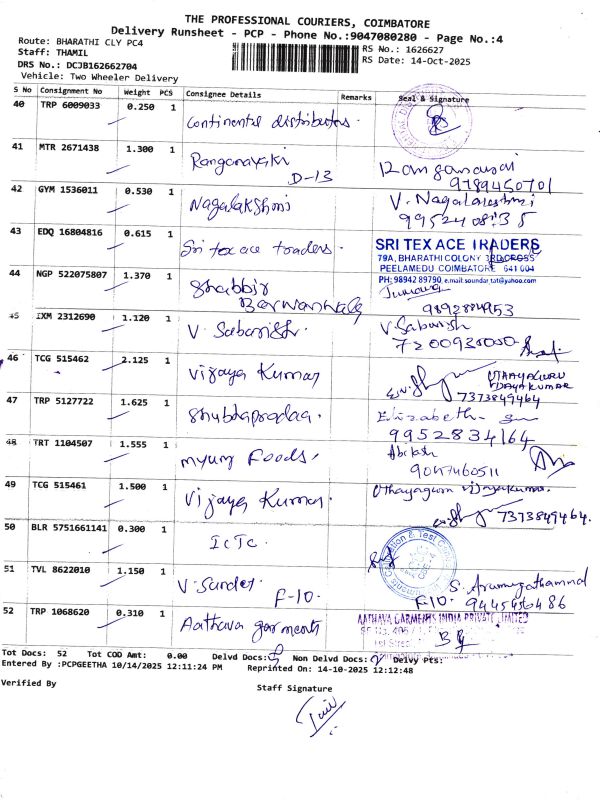 THE PROFESSIONAL COURIERS, COIMBATORE
Delivery Runsheet - PCP - Phone No.:9047080280 - Page No.:4
Route: BHARATHI CLY PC4
RS No.: 1626627
Staff: THAMIL
RS Date: 14-Oct-2025
DRS No.: DCJB162662704
Vehicle: Two Wheeler Delivery
S No Consignment No Weight PCS Consignee Details Remarks Seal & Signature
40 TRP 6009033 0.250 1 Continental distributors.
41 MTR 2671438 1.300 1 Ranganayaki D-13
9789450701
42 GYM 1536011 0.530 1 Nagalakshmi
V. Nagalakshmi
9952408835
43 EDQ 16804816 0.615 1 Sri tex ace traders.
SRI TEX ACE TRADERS
79A, BHARATHI COLONY 3RD CROSS
PEELAMEDU COIMBATORE 641 004
PH: 98942 89790, e.mail.soundar_tat@yahoo.com
44 NGP 522075807 1.370 1 Shabbir
9892884953
45 IXM 2312690 1.120 1 V. Sabarish.
V. Sabarish
7200930000
46 TCG 515462 2.125 1 Vijaya Kumar
UTHAYAGURU
VIJAYAKUMAR
7373849464
47 TRP 5127722 1.625 1 Shubhapradaa.
Elizabeth
9952834164
48 TRT 1104507 1.555 1 myum Foods.
Abilash
9047460511
49 TCG 515461 1.500 1 Vijaya Kumar.
Uthayaguru Vijayakumar.
7373849464.
50 BLR 5751661141 0.300 1 ICTC.
51 TVL 8622010 1.150 1 V. Sunder. F-10.
S. Arumugathammal
F10. 9445456486
52 TRP 1068620 0.310 1 Aathava garments
AATHAVA GARMENTS INDIA PRIVATE LIMITED
Tot Docs: 52 Tot COD Amt: 0.00 Delvd Docs: Non Delvd Docs: Delvy Pts:
Entered By :PCPGEETHA 10/14/2025 12:11:24 PM Reprinted On: 14-10-2025 12:12:48
Verified By
Staff Signature